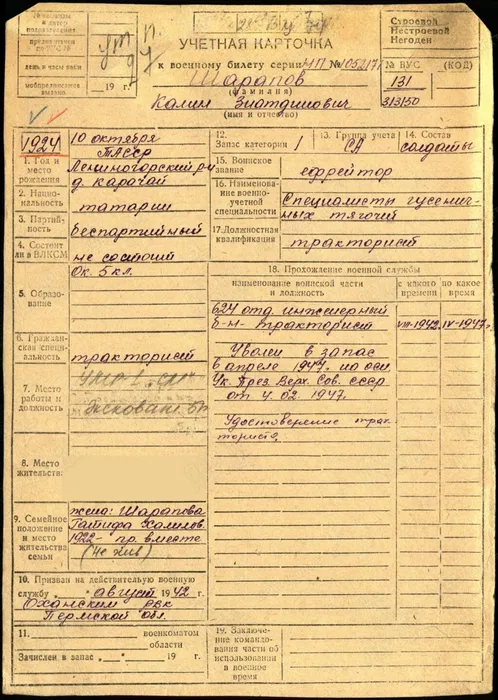 УЧЕТНАЯ КАРТОЧКА
к военному билету серии НП №
Шарапов
(фамилия)
Калим Зиатдинович
(имя и отчество)
Строевой
Нестроевой
Негоден
№ ВУС (КОД)
131
313150
19 г.
1924 10 октября
ТАССР
1. Год и место рождения
Лениногорский р-н
д. Каратай
2. Национальность
татарин
3. Партийность
беспартийный
4. Состоит ли в ВЛКСМ
не состоит
5. Образование
Ок. 5 кл.
6. Гражданская специальность
тракторист
7. Место работы и должность
8. Место жительства:
9. Семейное положение и место жительства семьи
жена: Шарапова
1922 - пр. вместе
10. Призван на действительную военную
службу „ " август 1942 г.
Оханским РВК
Пермской обл.
11. военкоматом
области
Зачислен в запас „ " 19 г.
12. Запас категория 1
13. Группа учета СА
14. Состав солдаты
15. Воинское звание
ефрейтор
16. Наименование военно-учетной специальности
Специалисты гусеничных тягачей
17. Должностная квалификация
тракторист
18. Прохождение военной службы
наименование воинской части и должность
с какого времени
по какое время
624 отд. инженерный
б-н - тракторист VIII-1942 IV-1947
Уволен в запас
в апреле 1947 на осн.
Ук. През. Верх. Сов. СССР
от 4.02 1947.
Удостоверение тракториста
19. Заключение командования части об использовании в военное время